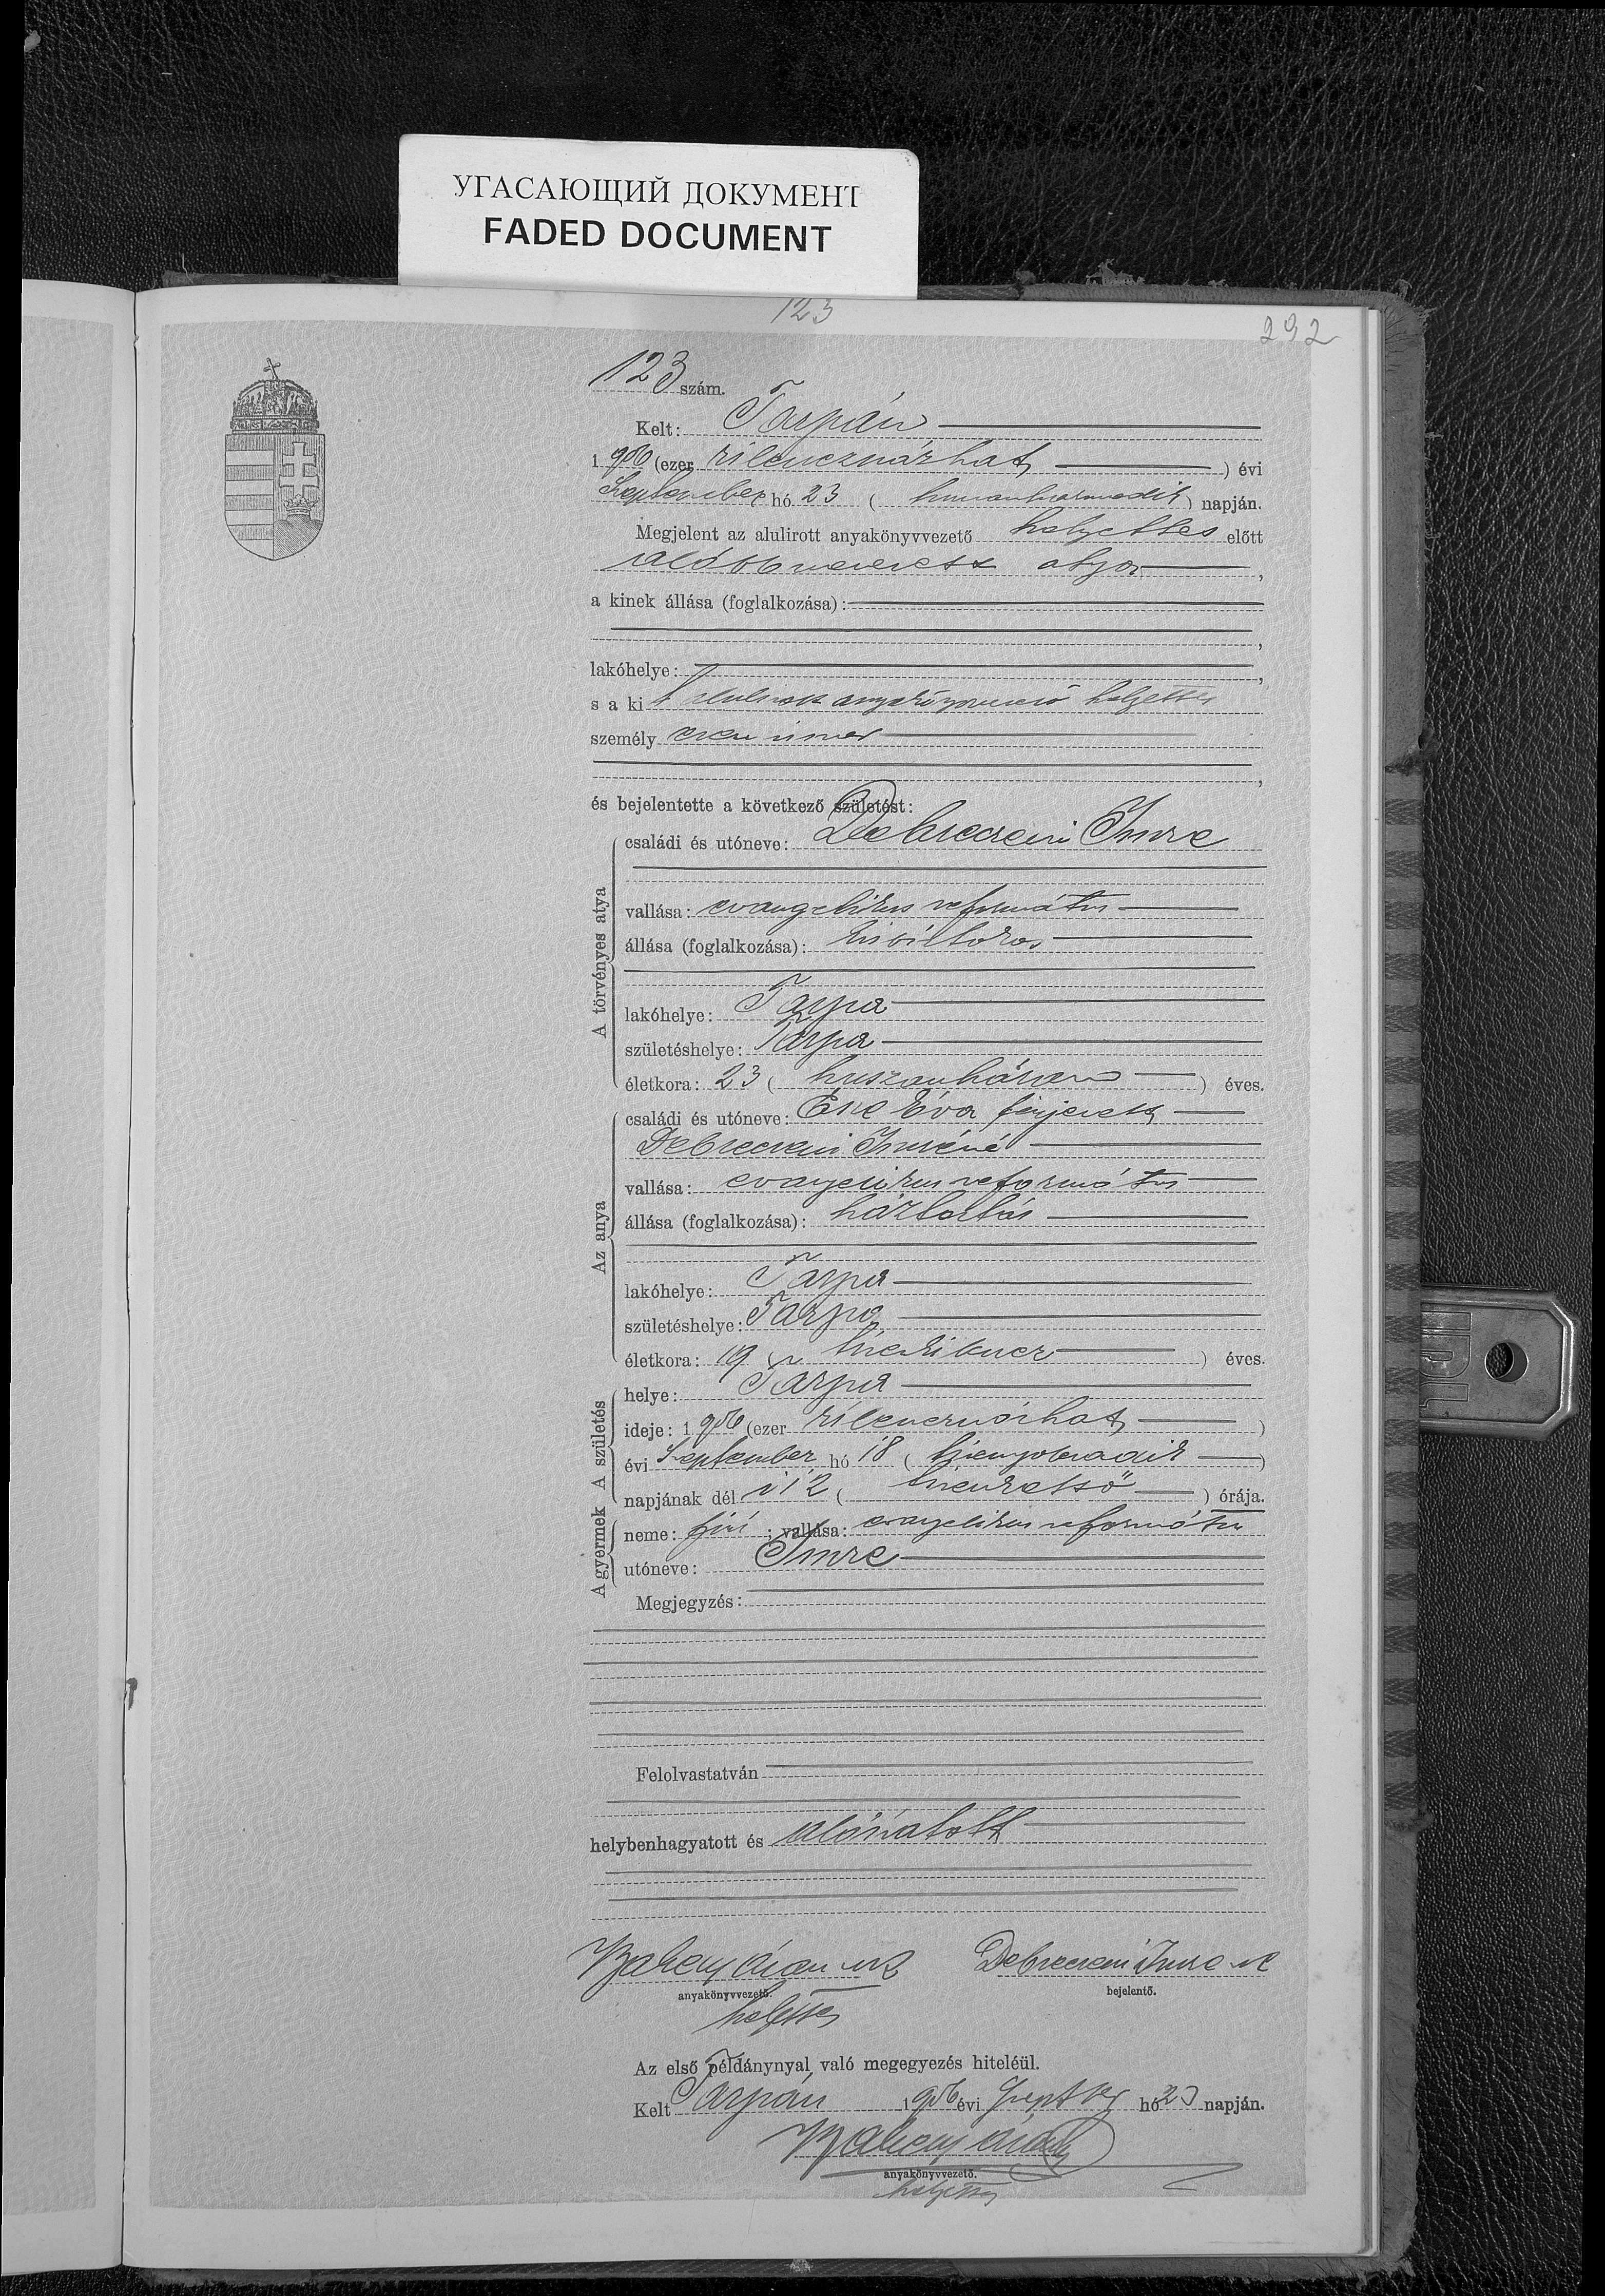 УГАСАЮЩИЙ ДОКУМЕНТ
FADED DOCUMENT
123
292
123 szám.
Kelt: Tarpán
1906 (ezer kilencznázhat) évi
September hó 23 (huszanharmadik) napján.
Megjelent az alulirott anyakönyvvezető helyettes előtt
alább nevezett atya,
a kinek állása (foglalkozása):
lakóhelye:
s a ki t alulirott anyakönyvvezető helyettes
személy esen ismer
és bejelentette a következő születést:
A törvényes atya
családi és utóneve: Debreczeni Imre
vallása: evangelikus református
állása (foglalkozása): kisbirtokos
lakóhelye: Tarpa
születéshelye: Tarpa
életkora: 23 (huszanhárom) éves.
Az anya
családi és utóneve: Éva férjezett
Debreczeni Imréné
vallása: evangelikus református
állása (foglalkozása): háztartás
lakóhelye: Tarpa
születéshelye: Tarpa
életkora: 19 (tizenkilencz) éves.
A születés
helye: Tarpa
ideje: 1906 (ezer kilenczszázhat)
évi September hó 18 (tizennyolczadik)
napjának dél i 12 (tizenkettő) órája.
A gyermek
neme: fiú; vallása: evangelikus református
utóneve: Imre
Megjegyzés:
Felolvastatván
helybenhagyatott és aláiratott
Debreczeni Imre sk
anyakönyvvezető. bejelentő.
helyettes
Az első példánynyal való megegyezés hiteléül.
Kelt Tarpán 1906 évi Septber hó 23 napján.
anyakönyvvezető.
helyettes